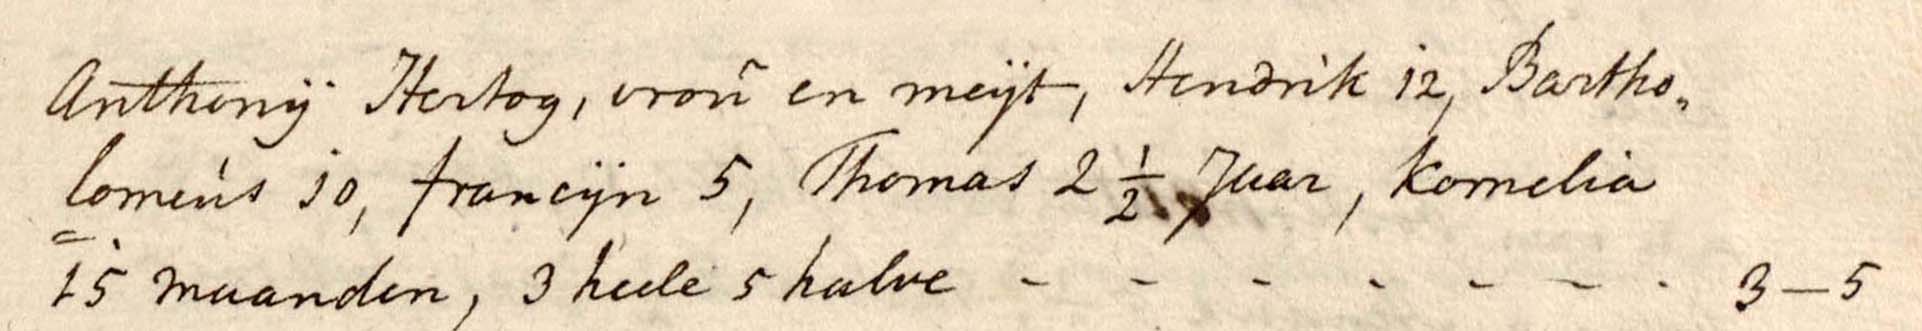 Anthonij Hertog, vroũ en meijt, Hendrik 12, Bartho„
lomeús 10, francijn 5, Thomas 2 1/2 Jaar, Kornelia
15 maanden, 3 heele 5 halve - - - - - - - 3-5